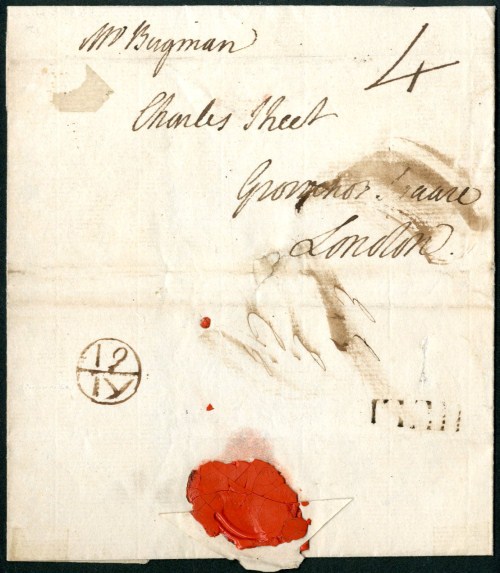 Mr Bugman
4
Charles Street
Grosvenor Square
London.
19
IY